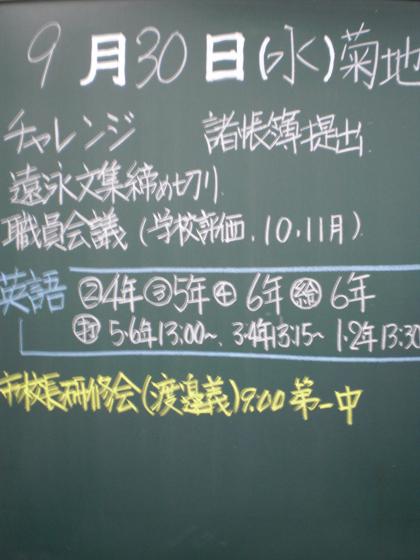 9月30日(水)菊地
チャレンジ 諸帳簿提出
遠泳文集締め切り
職員会議(学校評価.10.11月)
英語 ②4年③5年④6年㊗6年
5・6年13:00～、3・4年13:15～ 1・2年13:30
市校長研修会(渡邉義)9:00第一中